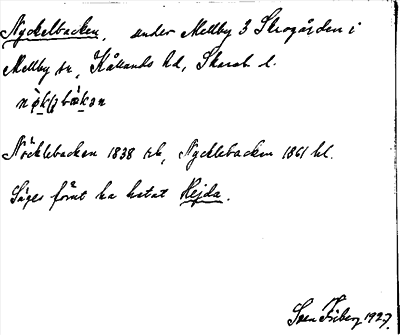 Nyckelbacken, under Mellby 3 Skogården i
Mellby sn, Kållands hd, Skarab. l.
Nöcklebacken 1838 hfl, Nycklebacken 1861 hfl.
Säges förut ha hetat Hejda.
Sven Friberg 1927.